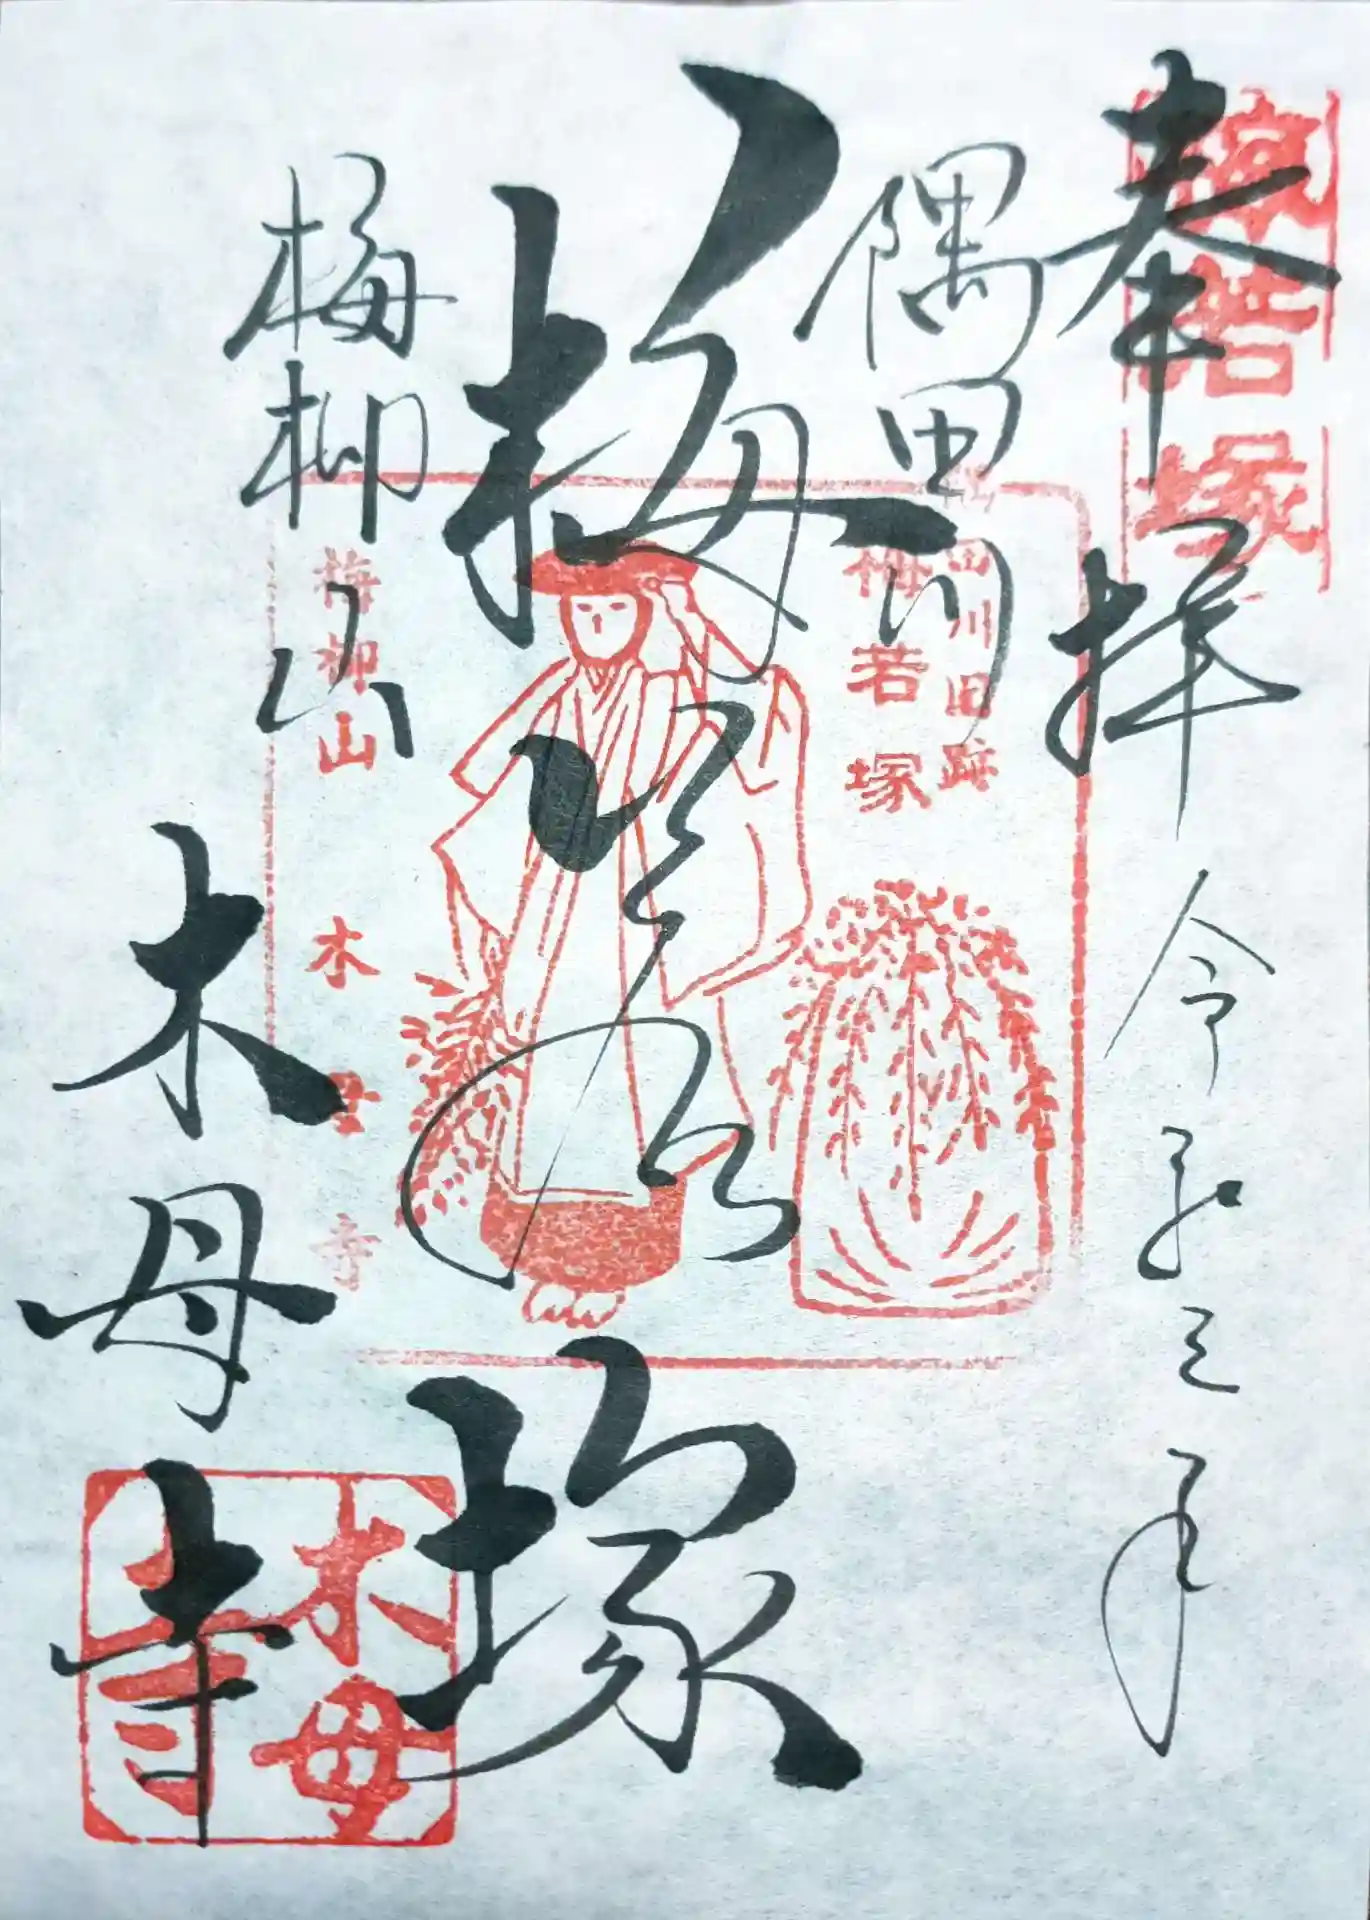 奉拝
令和三年
隅田川
梅若塚
梅柳山
木母寺
梅若塚
梅若塚
梅柳山
木母寺
木母寺